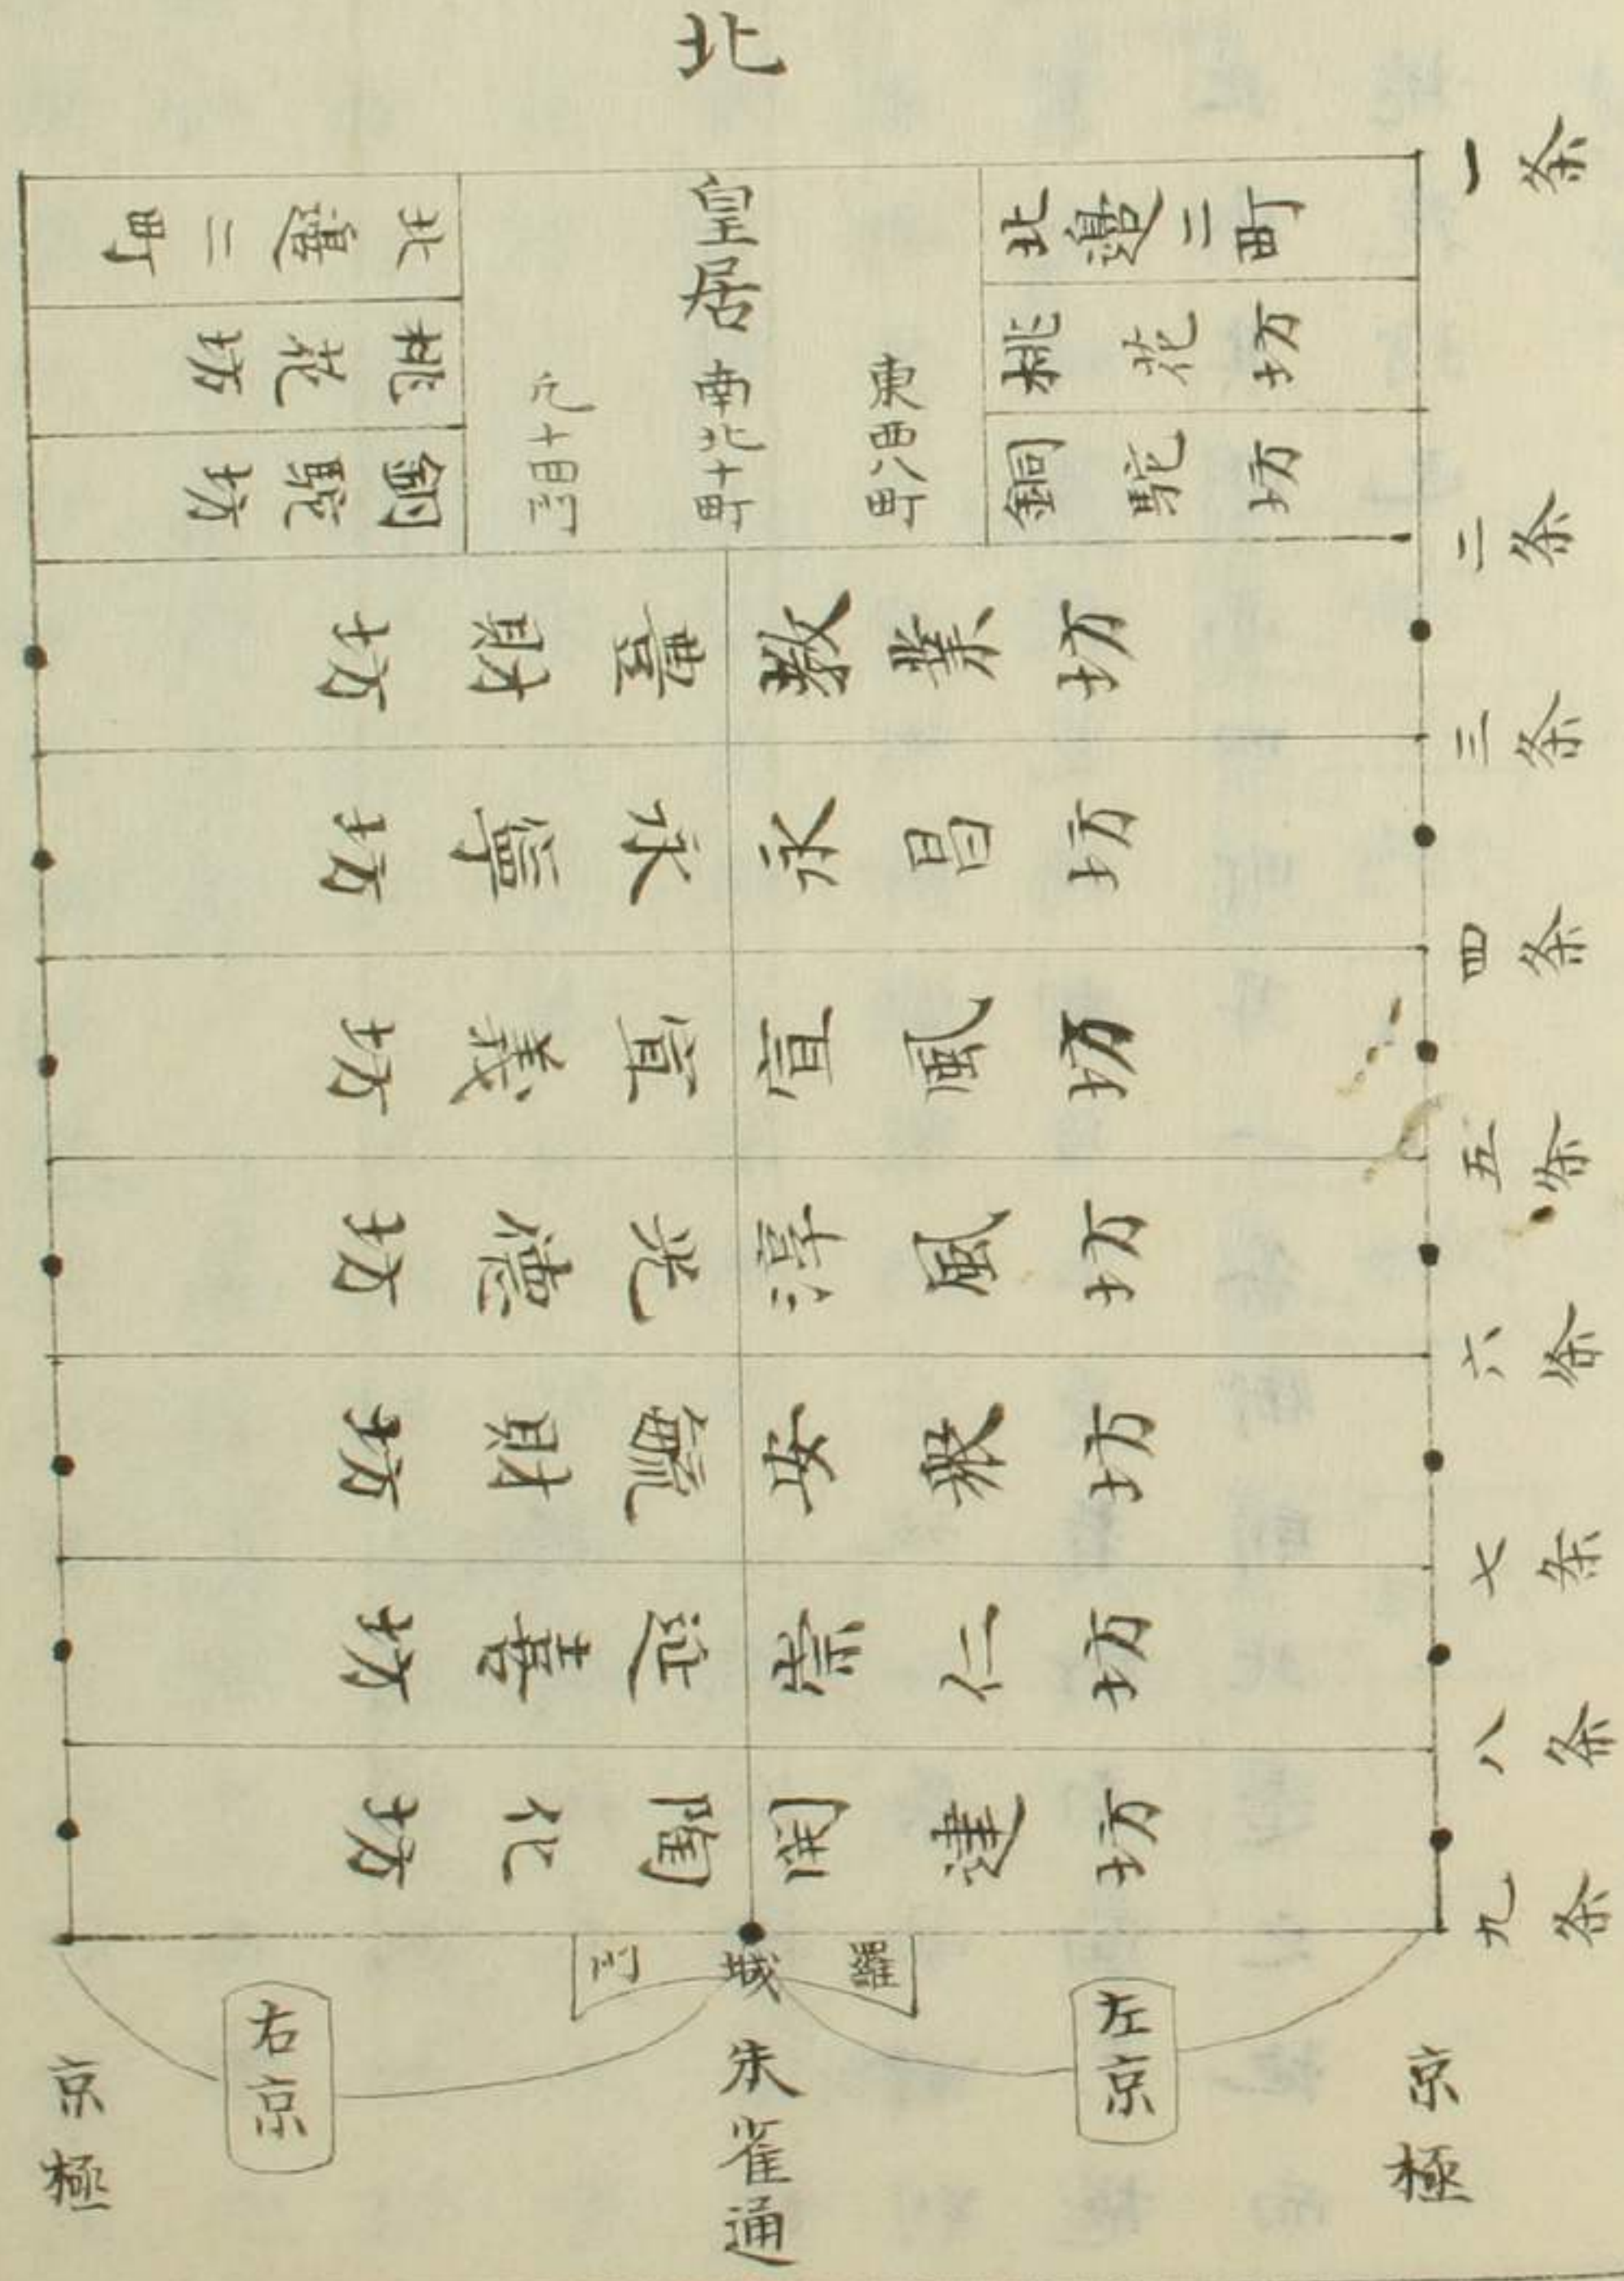 北
一条
二条
三条
四条
五条
六条
七条
八条
九条
北邉二町
桃花坊
銅駝坊
皇居
東西八町
南北十町
凡十四門
北邉二町
桃花坊
銅駝坊
教業坊
永昌坊
宣風坊
淳風坊
安衆坊
崇仁坊
開建坊
豊財坊
永寧坊
宣義坊
光德坊
毓財坊
延喜坊
陶化坊
羅城門
左京
右京
朱雀通
京極
京極